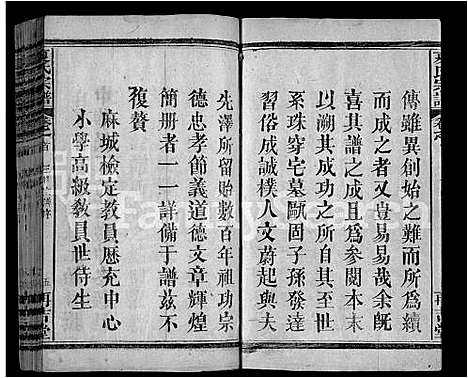 氏宗譜
傳雖異創始之難而所為續
而成之者又豈易易余既
喜其譜之成且為參閱本末
以溯其成功之非易而世
系珠穿宅墓甌固子孫蕃
習俗成誠樸人文蔚起與夫
先澤所留貽數百年祖功宗
德忠孝節義道德文章輝煌
簡册者一一詳備于譜兹不
復贅
麻城檢定教員歷充中心
小學高級教員世侍生
氏宗譜
卷首
五